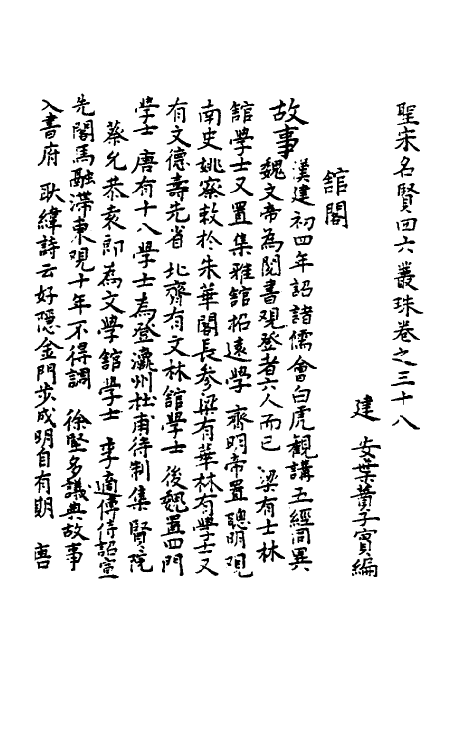 聖宋名賢四六叢珠卷之三十八
建安葉蕡子實編
館閣
故事
漢建初四年詔諸儒會白虎觀講五經同異
魏文帝為閱書觀登者六人而已 梁有士林
館學士又置集雅館招遠學 齊明帝置聰明觀
南史姚察敕於朱華閣長参梁有華林有學士又
有文德壽光省 北齊有文林館學士 後魏置四門
學士 唐有十八學士為登瀛州杜甫待制集賢院
蔡允恭袁郎為文學館學士 李適傳待詔宣
先閣馬融滯東觀十年不得調 徐堅多議典故事
入書府 耿緯詩云好隱金門步成明自有期 唐